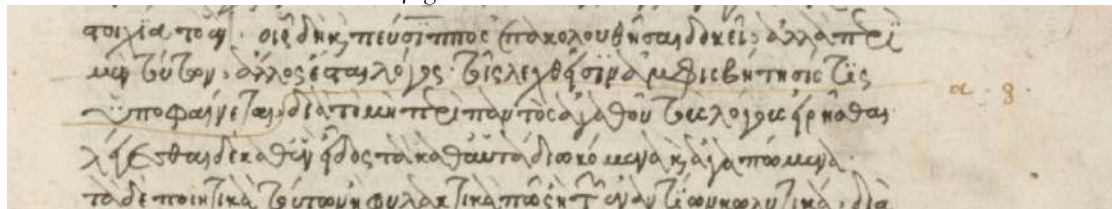 στοιχία τὸ ἕν· οἷς δὴ κ πεύσιππος ἐπακολουθῆσαι δοκεῖ· ἀλλὰ περὶ
μὲν τούτων, ἄλλος ἔσται λόγος· τοῖς λεχθεῖσιν δὲ ἀμφισβήτησίς τις
ὑποφαίνεται, διὰ τὸ μὴ περὶ παντὸς ἀγαθοῦ τοὺς λόγους εἰρῆσθαι
λέγεσθαι δὲ καθ' ἓν εἶδος τὰ καθ' αὑτὰ διωκόμενα κ ἀγαπώμενα·
τὰ δὲ ποιητικὰ τούτων ἢ φυλακτικά πως ἢ τῶν ἐναντίων κωλυτικὰ, διὰ
α. 8.